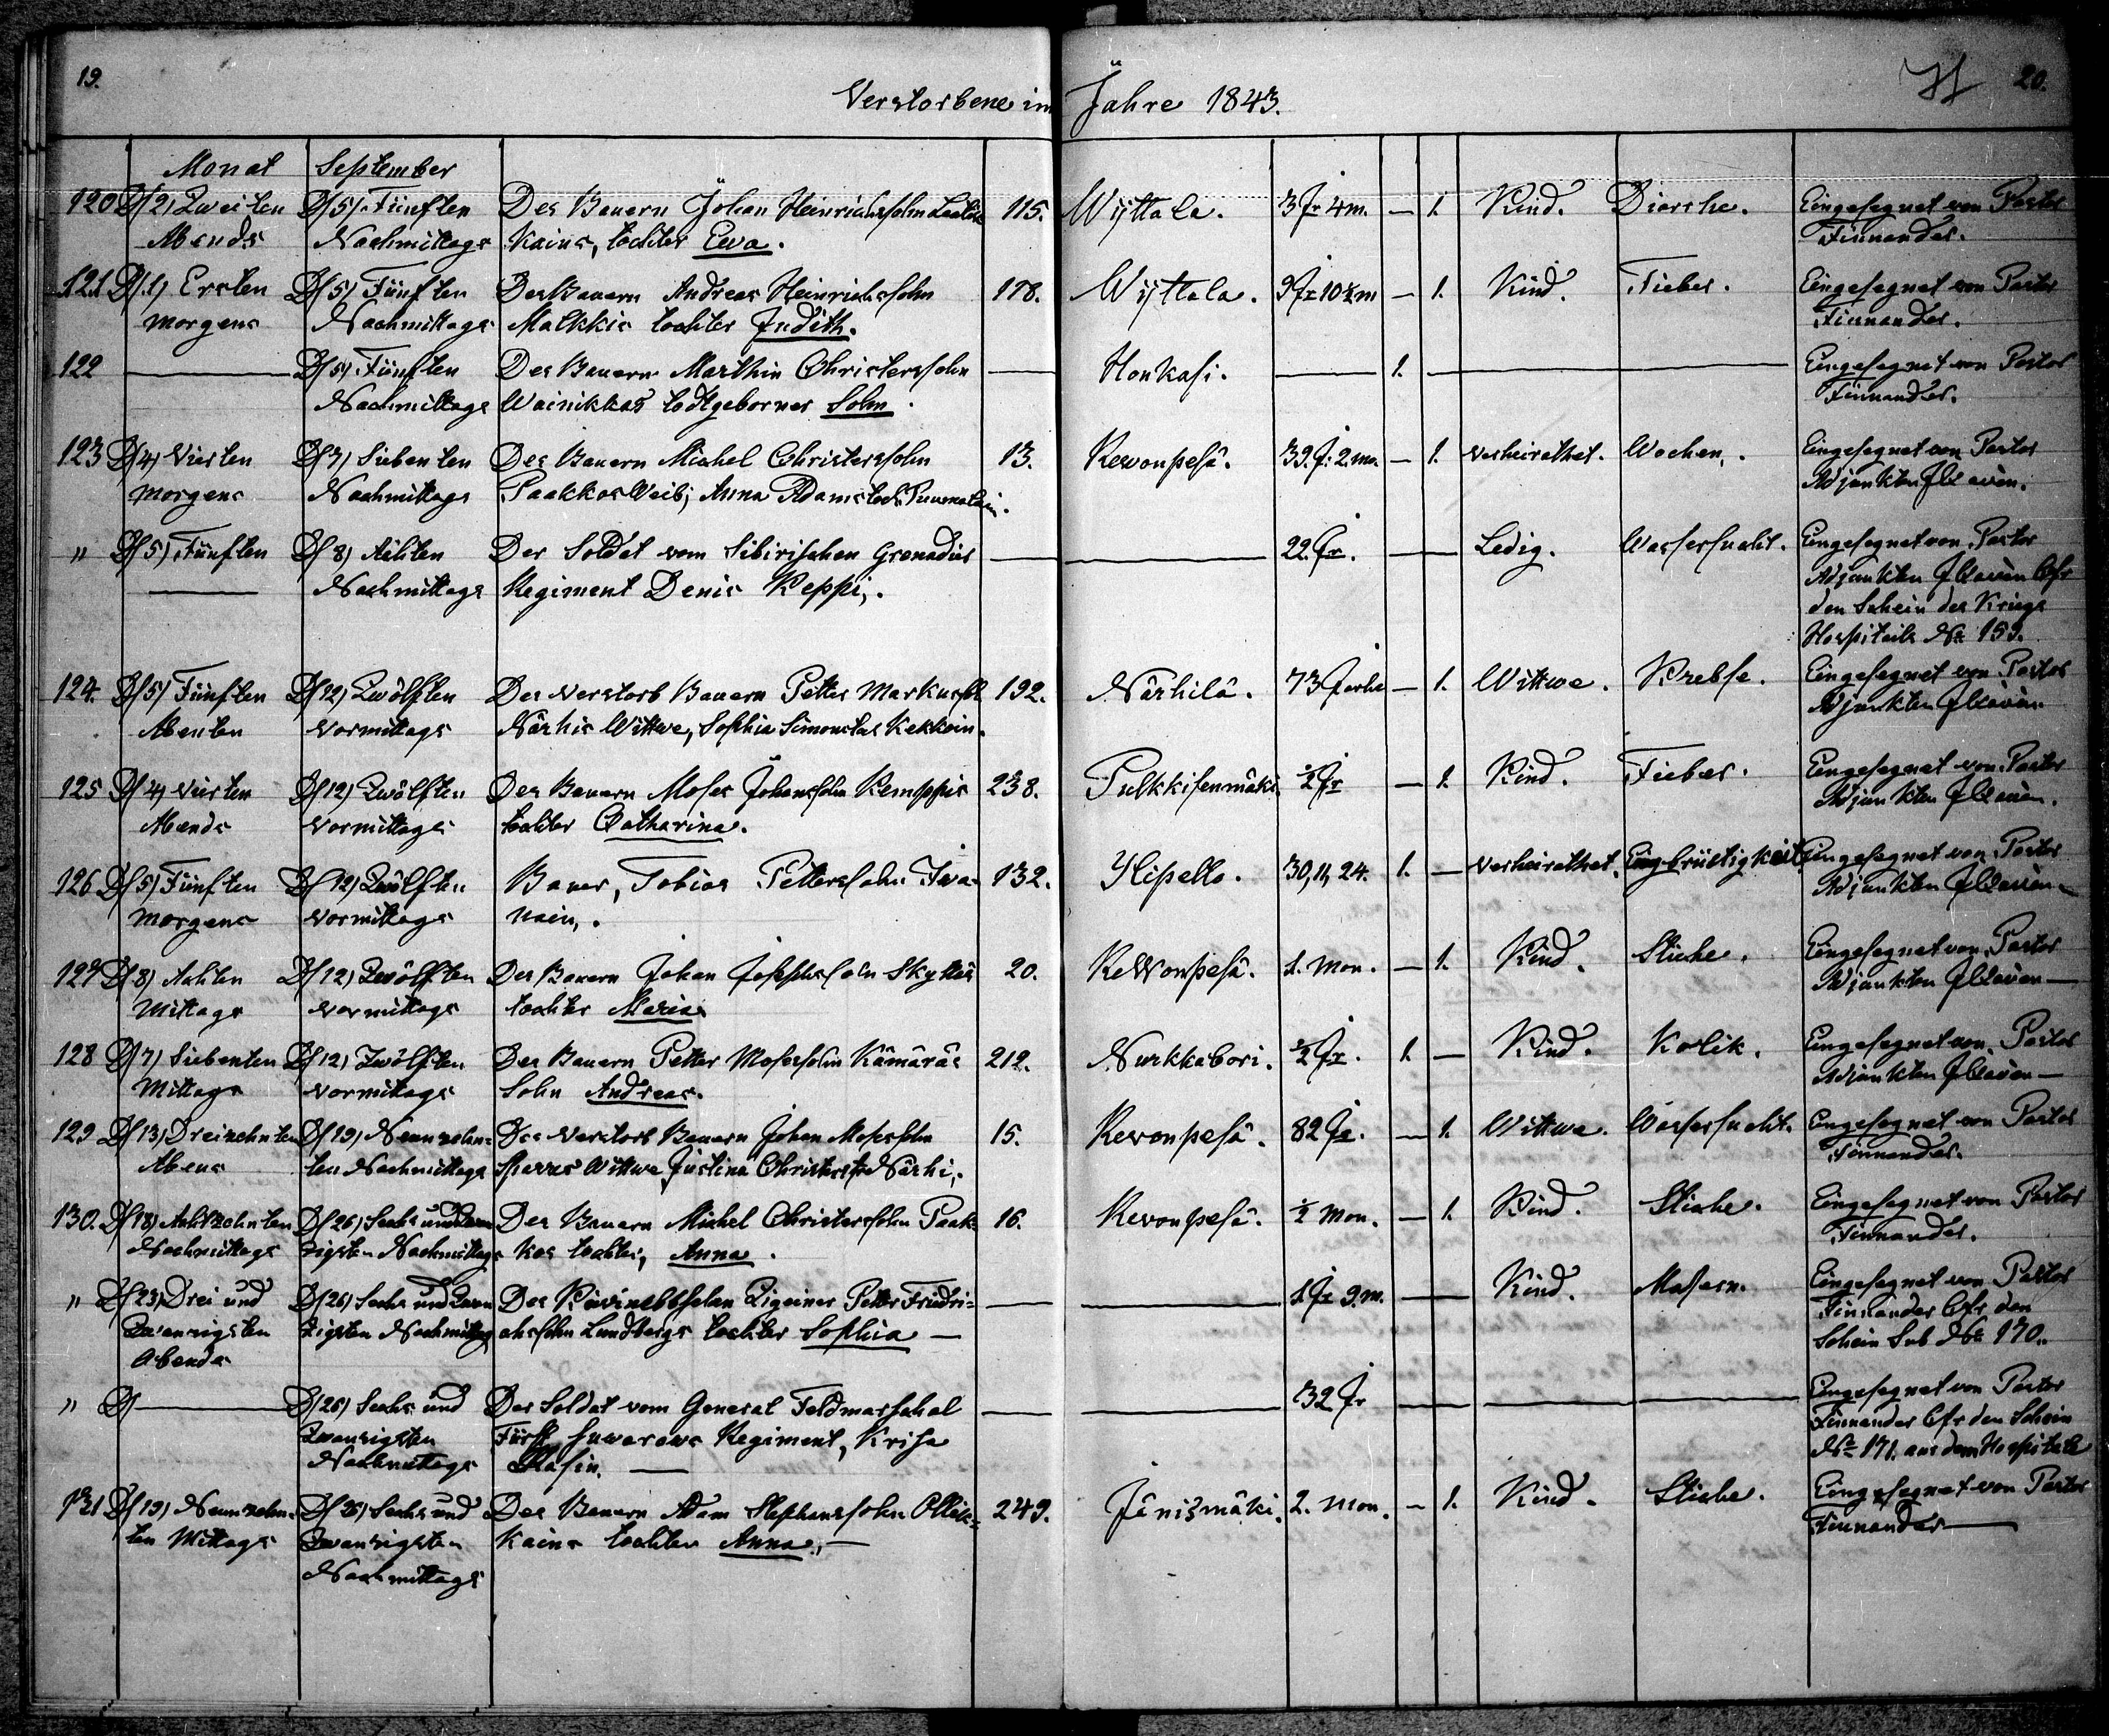 19.
20.
Verstorbene im Jahre 1843.
Monat September
120 D/2) Zweiten D/5) Fünften Des Bauern Johan Heinrichssohn 115. Wyttala. 3 Jr 4 m. — 1. Kind. Diarrhe. Eingesegnet von Pastor
Abends Nachmittags kains, tochter Ewa. Finnander.
121 D/1) Ersten D/5) Fünften Des Bauern Andreas Heinrichssohn 118. Wyttala. 9 Jr 10½ m — 1. Kind. Fieber. Eingesegnet von Pastor
Morgens Nachmittags Malkkis tochter Judith. Finnander.
122 — D/5) Fünften Des Bauern Marthin Christerssohn — Honkasi. — 1. — Eingesegnet von Pastor
Nachmittags Wainikkas todtgeborner Sohn. Finnander.
123 D/4) Vierten D/7) Siebenten Des Bauern Michel Christerssohn 13. Rewonpesä. 39. J. 2. mo. — 1. verheirathet. Wochen. Eingesegnet von Pastor
Morgens Nachmittags Paakkos Weib, Anna Adams toch. Puumalain. Adjunkten
" D/5) Fünften D/8) Achten Der Soldat vom Sibirischen Grenadier — 22. Jr. — Ledig. Wassersucht. Eingesegnet von Pastor
— Nachmittags Regiment Denis Keppi,. Adjunkten Cfr
den Schein des Kriegs
Hospitals No 159.
124. D/5) Fünften D/12) Zwölften Des verstorb Bauern Petter Markuss. 192. Närhilä. 73 Jahr — 1. Wittwe. Krebse. Eingesegnet von Pastor
Abenten Vormittags Närhis Wittwe, Sophia Simonstas Kekkoin. Adjunkten
125 D/4) Vierten D/12) Zwölften Des Bauern Moses Johanssohn Kemppis 238. Pulkkisenmäki. ½ Jr — 1. Kind. Fieber. Eingesegnet von Pastor
Abends Vormittags tochter Catharina. Adjunkten
126 D/5) Fünften D/12) Zwölften Bauer, Tobias Petterssohn Iwa- 132. Ylipello. 30, 11, 24. 1. — verheirathet. Engbrüstigkeit. Eingesegnet von Pastor
Morgens Vormittags nain,. Adjunkten
127 D/8) Achten D/12) Zwölften Des Bauern Johan Josephssohn Skyttäs 20. Rewonpesä. 1. Mon. — 1. Kind. Stiche. Eingesegnet von Pastor
Mittags Vormittags tochter Maria. Adjunkten
128 D/7) Siebenten D/12) Zwölften Des Bauern Petter Mosessohn Kämäräs 212. Nurkkabori. ½ Jr. 1. — Kind. Kolik. Eingesegnet von Pastor
Mittags Vormittags Sohn Andreas. Adjunkten
129 D/13) Dreizehnten D/19) Neunzehn- Des verstorb Bauern Johan Mosessohn 15. Rewonpesä. 82 Jr. — 1. Wittwe. Wassersucht. Eingesegnet von Pastor
Abens ten Nachmittags Sparrs Wittwe Justina Christerst. Närhi,. Finnander.
130. D/18) Achtzehnten D/26) Sechs und Zwan Des Bauern Michel Christerssohn Paak- 16. Rewonpesä. ½ Mon. — 1. Kind. Stiche. Eingesegnet von Pastor
Nachmittags zigsten Nachmittags kos tochter, Anna. Finnander.
" D/23) Drei und D/26) Sechs und Zwan Des Zigeiner Petter Friedri- — 1 Jr 9. m. — Kind. Masern. Eingesegnet von Pastor
Zwanzigsten zigsten Nachmittag chssohn Lundbergs tochter Sophia — Finnander Cfr den
Abends Schein Sub No 170.
" D/ — D/26) Sechs und Der Soldat vom General Feldmarschal — 32 Jr — Eingesegnet von Pastor
Zwanzigsten Fürst Suwarows Regiment, Krisa Finnander Cfr den Schein
Nachmittags Rasin. — No 171. aus dem Hospitale
131 D/19) Neunzehn- D/26) Sechs und Des Bauern Adam Stephanssohn Ollik- 249. Jänismäki. 2. Mon. — 1. Kind. Stiche. Eingesegnet von Pastor
ten Mittags Zwanzigsten kains tochter Anna,— Finnander —
Nachmittags